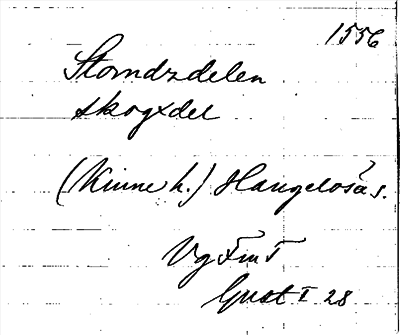 1556
Storndzdelen
skogxdel
(Kinne h.) Hangelösås.
Vg FmT
Gust I 28